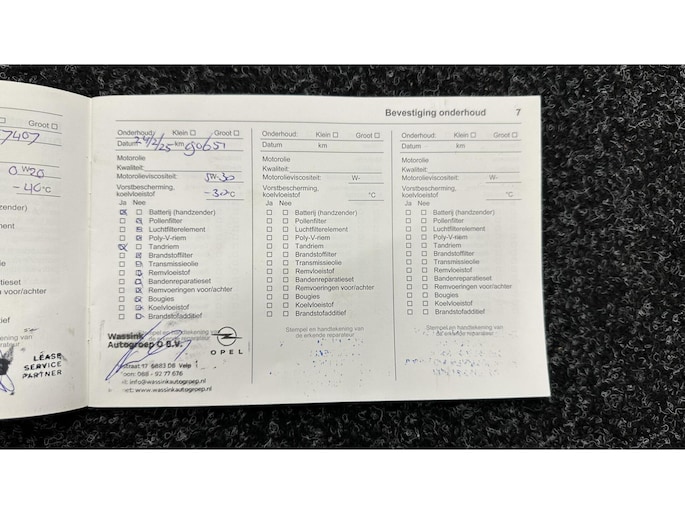 Bevestiging onderhoud 7
Groot
7407
0 W 20
-40 °C
LEASE
SERVICE
PARTNER
Onderhoud: Klein Groot
Datum 24/2/25 km 90651
Motorolie
Kwaliteit:
Motorolieviscositeit: 5W-30
Vorstbescherming,
koelvloeistof -30°C
Ja Nee
Batterij (handzender)
Pollenfilter
Luchtfilterelement
Poly-V-riem
Tandriem
Brandstoffilter
Transmissieolie
Remvloeistof
Bandenreparatieset
Remvoeringen voor/achter
Bougies
Koelvloeistof
Brandstofadditief
Stempel en handtekening van
de erkende reparateur
Wassink
Autogroep O B.V.
OPEL
straat 17 6883 DB Velp
088 - 92 77 676
info@wassinkautogroep.nl
www.wassinkautogroep.nl
Onderhoud: Klein Groot
Datum km
Motorolie
Kwaliteit:
Motorolieviscositeit: W-
Vorstbescherming,
koelvloeistof °C
Ja Nee
Batterij (handzender)
Pollenfilter
Luchtfilterelement
Poly-V-riem
Tandriem
Brandstoffilter
Transmissieolie
Remvloeistof
Bandenreparatieset
Remvoeringen voor/achter
Bougies
Koelvloeistof
Brandstofadditief
Stempel en handtekening van
de erkende reparateur
Onderhoud: Klein Groot
Datum km
Motorolie
Kwaliteit:
Motorolieviscositeit: W-
Vorstbescherming,
koelvloeistof °C
Ja Nee
Batterij (handzender)
Pollenfilter
Luchtfilterelement
Poly-V-riem
Tandriem
Brandstoffilter
Transmissieolie
Remvloeistof
Bandenreparatieset
Remvoeringen voor/achter
Bougies
Koelvloeistof
Brandstofadditief
Stempel en handtekening van
de erkende reparateur